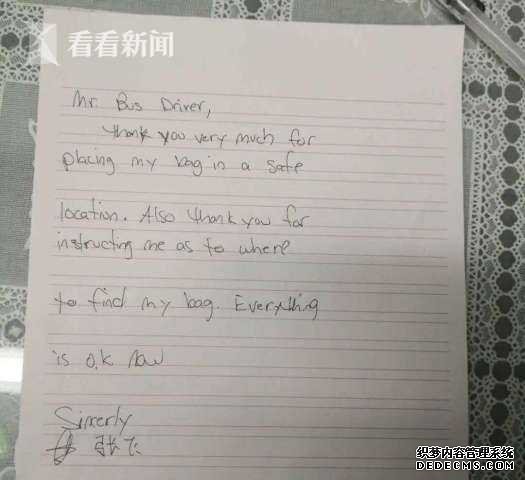 看看新闻
Mr. Bus Driver,
Thank you very much for
placing my bag in a safe
location. Also thank you for
instructing me as to where
to find my bag. Everything
is o.k now
Sincerly
张飞
织梦内容管理系统
DEDECMS.COM